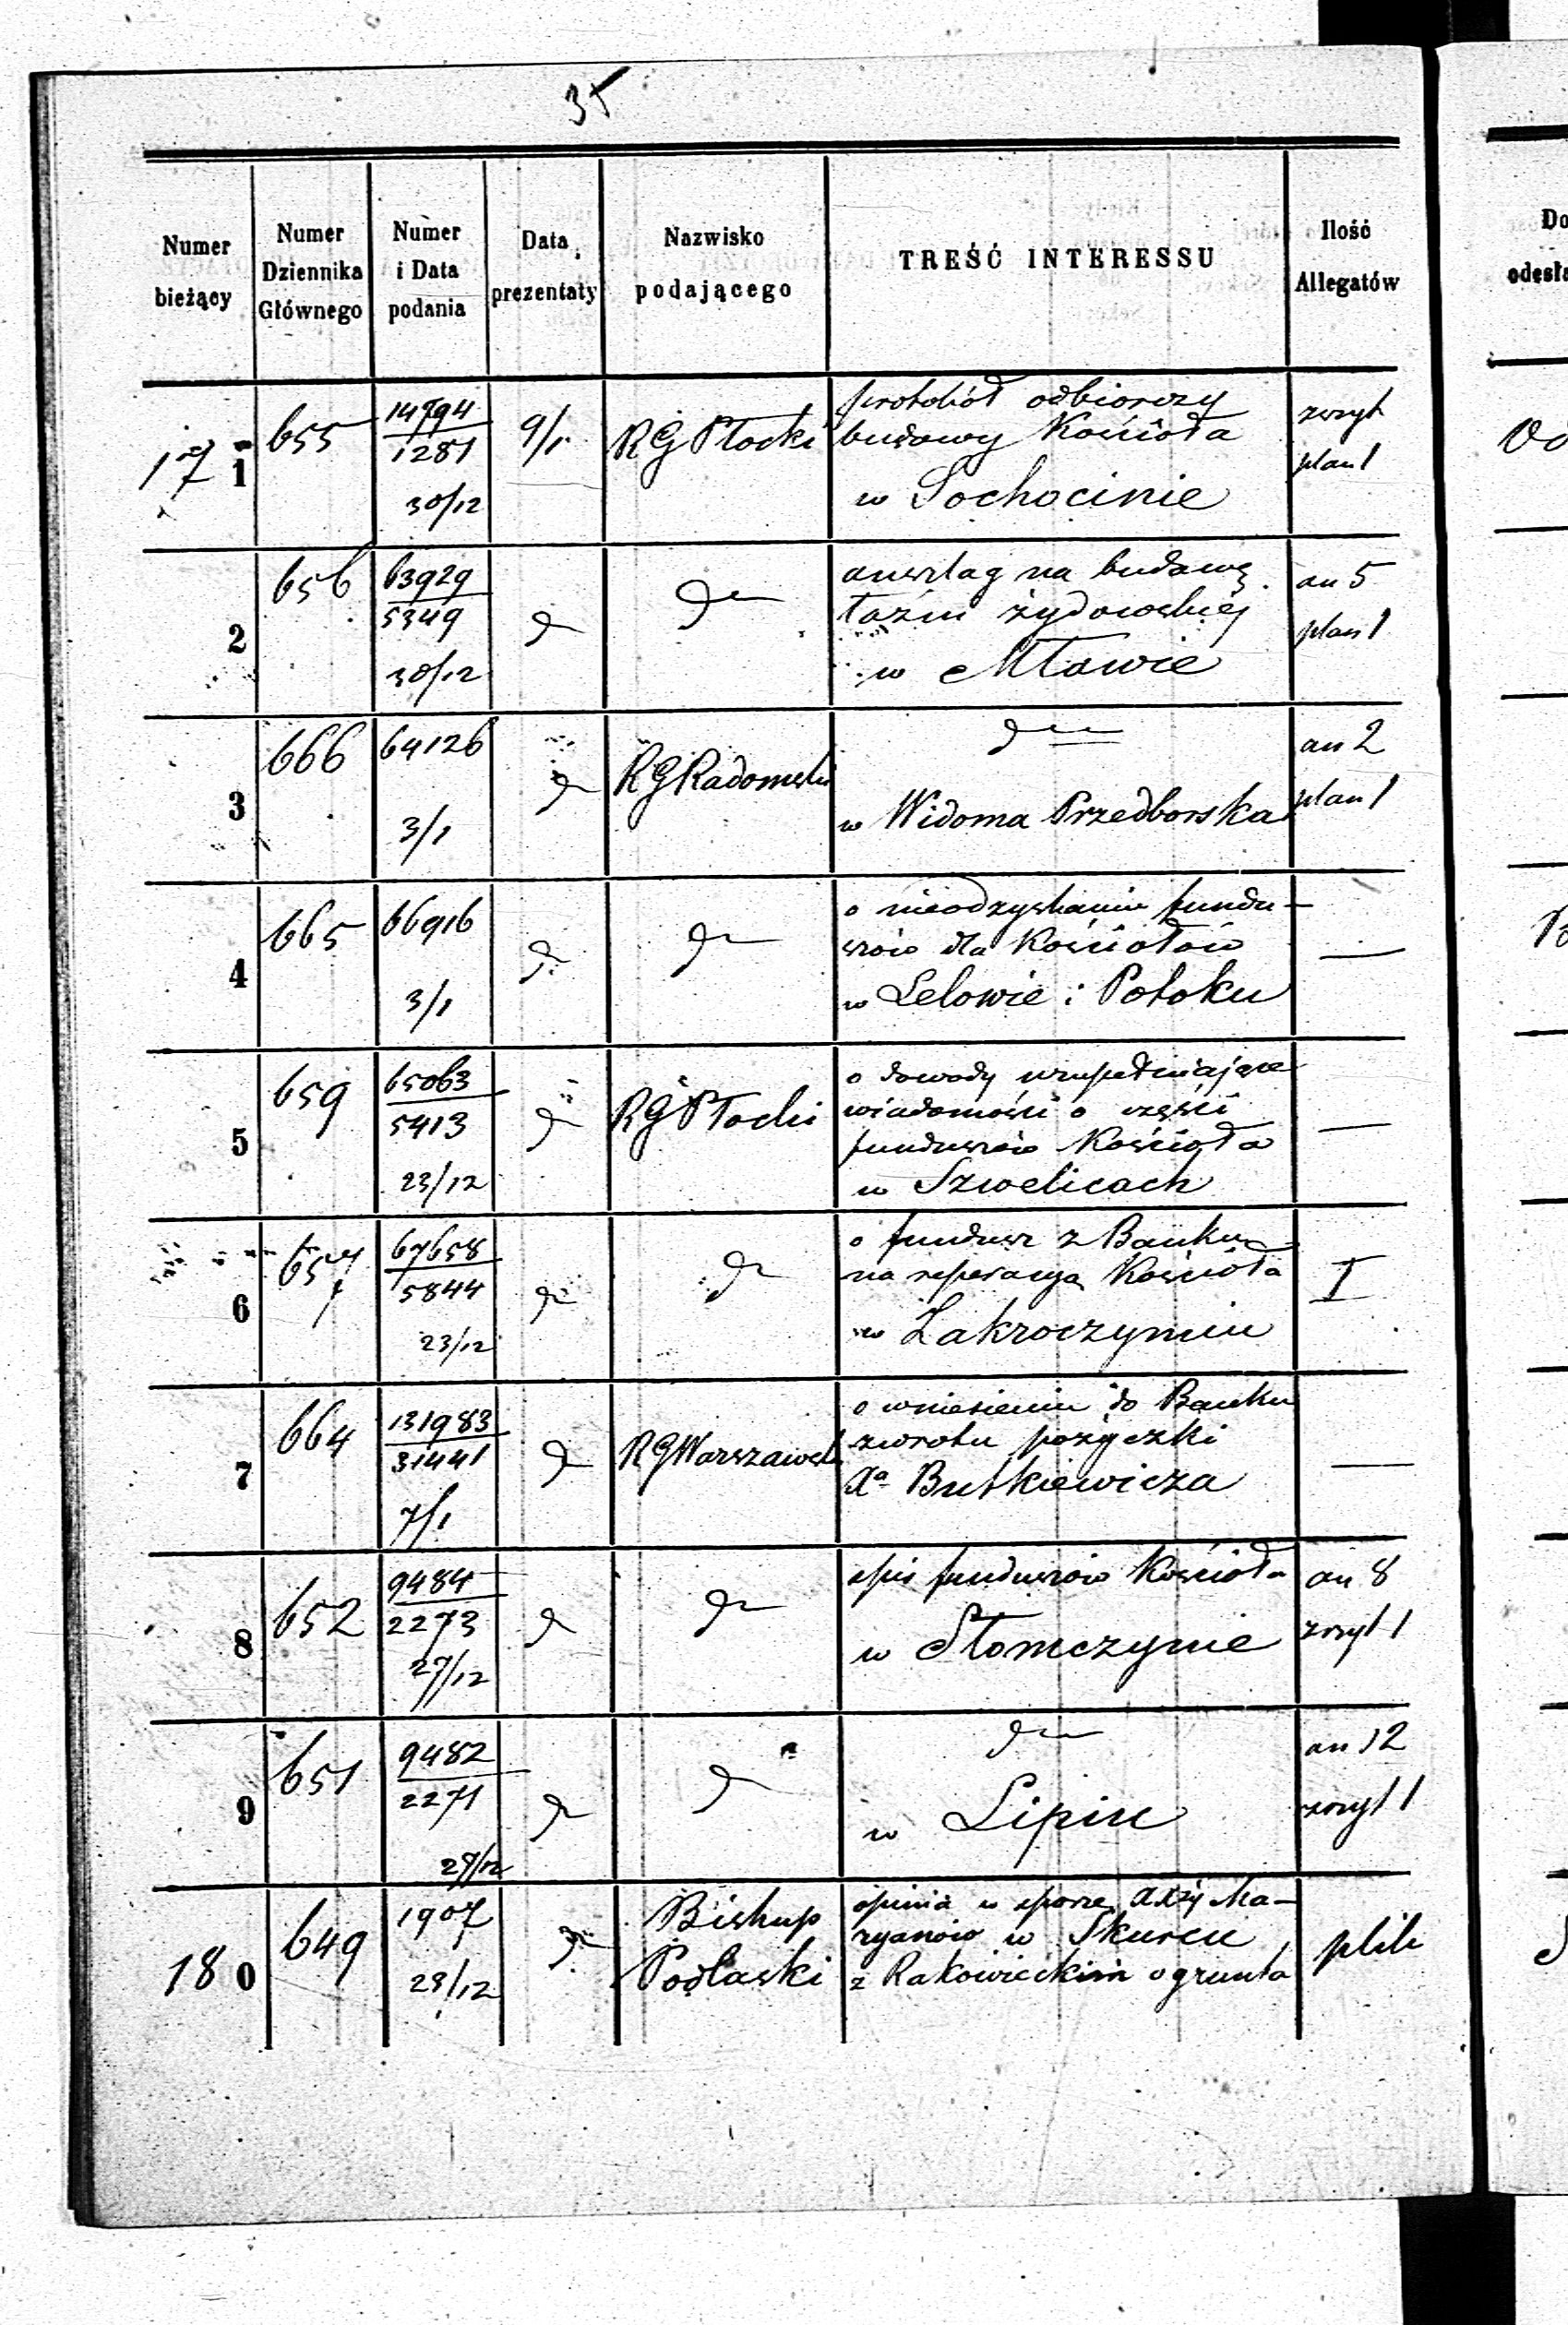 35
Numer bieżący | Numer Dziennika Głównego | Numer i Data podania | Data prezentaty | Nazwisko podającego | TREŚĆ INTERESSU | Ilość Allegatów
171 | 655 | 14794/1281 30/12 | 9/1 | RG Płocki | protokół odbiorczy | zszyt
budowy Kościoła | plan 1
w Sochocinie
2 | 656 | 63929/5349 30/12 | d | dto | anszlag na budowę | an 5
łaźni żydowskiej | plan 1
w Mławie
3 | 666 | 64126 3/1 | d | RG Radomski | dto | an 2
w Widoma Przedborska | plan 1
4 | 665 | 66916 3/1 | d | dto | o nieodzyskaniu fundu- | —
szów dla Kościołów
w Lelowie i Potoku
5 | 659 | 65063/5413 23/12 | d | RG Płocki | o dowody uzupełniające | —
wiadomości o części
funduszów Kościoła
w Szwelicach
6 | 657 | 67658/5844 23/12 | d | dto | o fundusz z Banku | I
na reperacyą Kościoła
w Zakroczymiu
7 | 664 | 131983/31441 7/1 | d | RG Warszawski | o wniesieniu do Banku | —
zwrotu pożyczki
Xa Butkiewicza
8 | 652 | 9484/2273 27/12 | d | dto | spis funduszów Kościoła | an 8
w Słomczynie | zszyt 1
9 | 651 | 9482/2271 27/12 | d | d | dto | an 12
w Lipiu | zszyt 1
180 | 649 | 1907 28/12 | d | Biskup Podlaski | opinia w sporze XXży Ma-
ryanów w Skurcu | plik
z Rakowieckim o grunta
Do
odesła